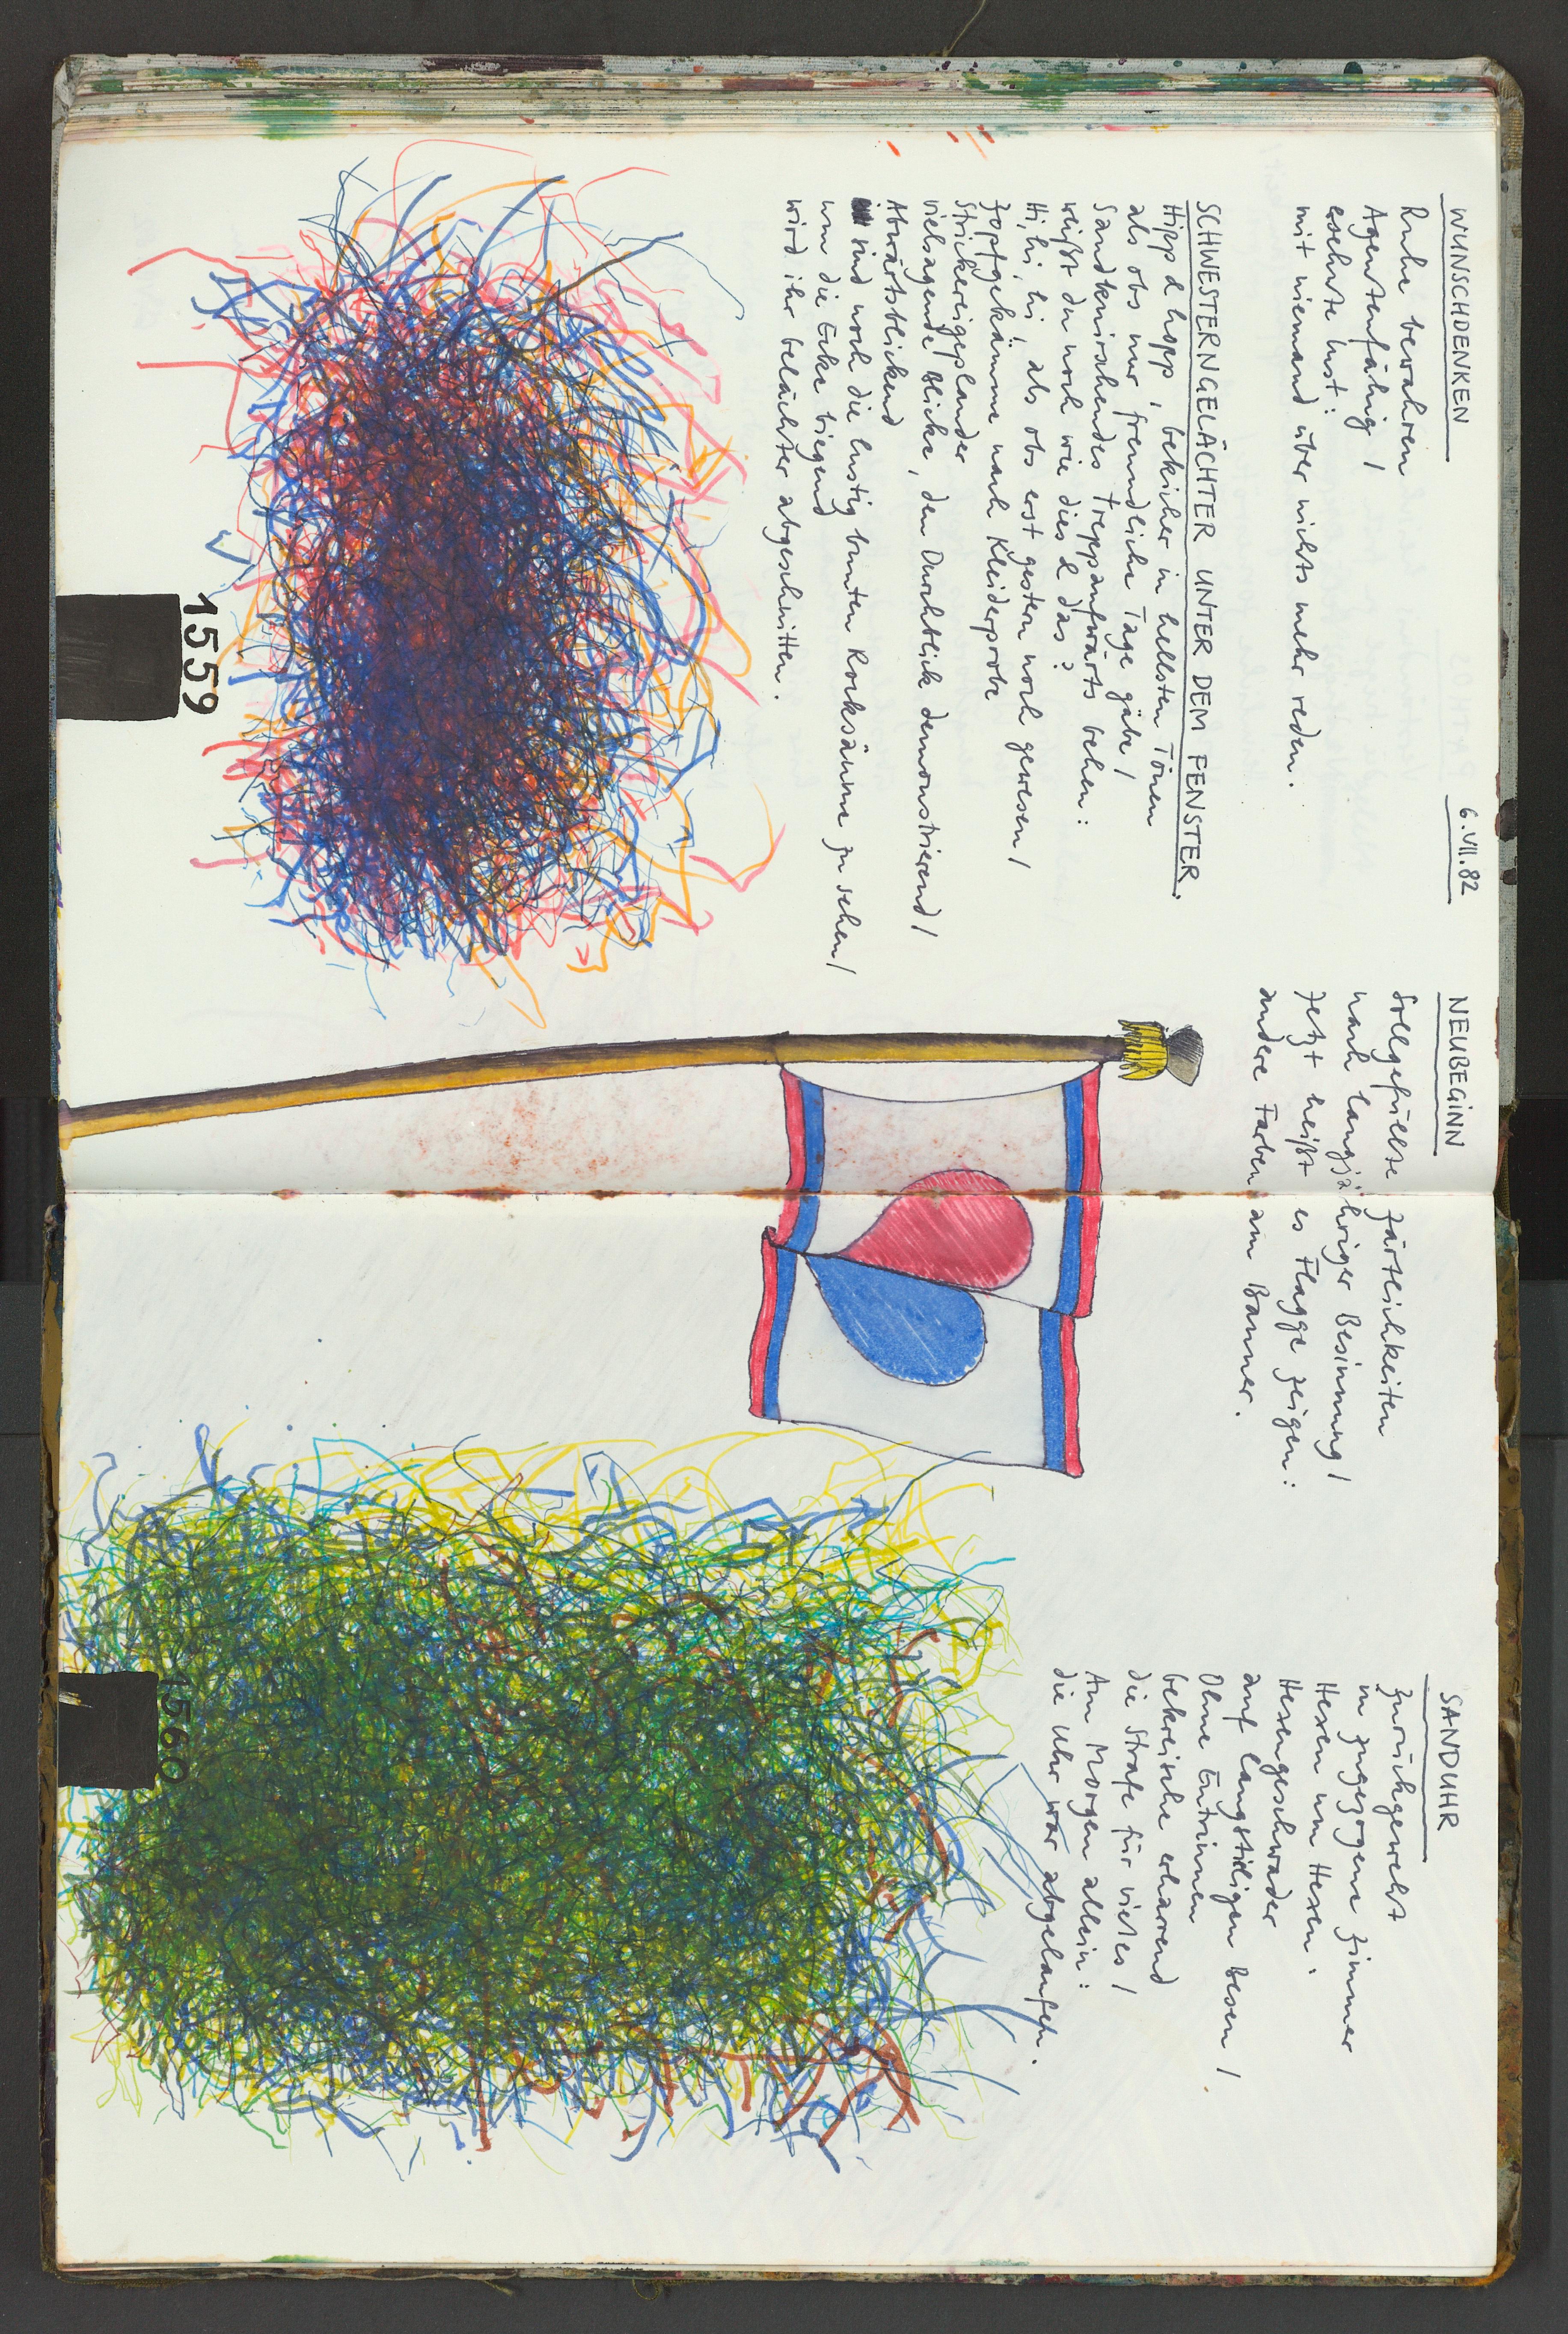 WUNSCHDENKEN
6.VII.82
Ruhe bewahren
Agentenfährig /
ersehnte Lust:
mit niemand über nichts mehr reden.
SCHWESTERNGELÄCHTER UNTER DEM FENSTER.
Hipp & hopp, bekicher in hellsten Tönen
als obs nur freundliche Tage gäbe /
Sandknirschendes Treppaufwärts beben:
weißt du noch wie dies & das?
Hi, hi, hi, als obs erst gestern noch gewesen /
Zopfgekämme nach Kleiderprobe
Strickereigeplauder
vielsagende Blicke, den Durchblick demonstrierend /
Abwärtsblickend
sind noch die lustig bunten Rocksäume zu sehen /
um die Ecke biegend
wird ihr Gelächter abgeschnitten.
1559
NEUBEGINN
Sollgefüllte Zärtlichkeiten
nach langjähriger Besinnung /
Jetzt heißt es Flagge zeigen:
andere Farben am Banner.
SANDUHR
Zurückgewekt
in zugezogene Zimmer
Hexen um Hexen.
Hexengeschwader
auf langstiligen Besen /
Ohne Entrinnen
bekreische erharrend
die Strafe für vieles /
Am Morgen allein:
die Uhr war abgelaufen.
1560